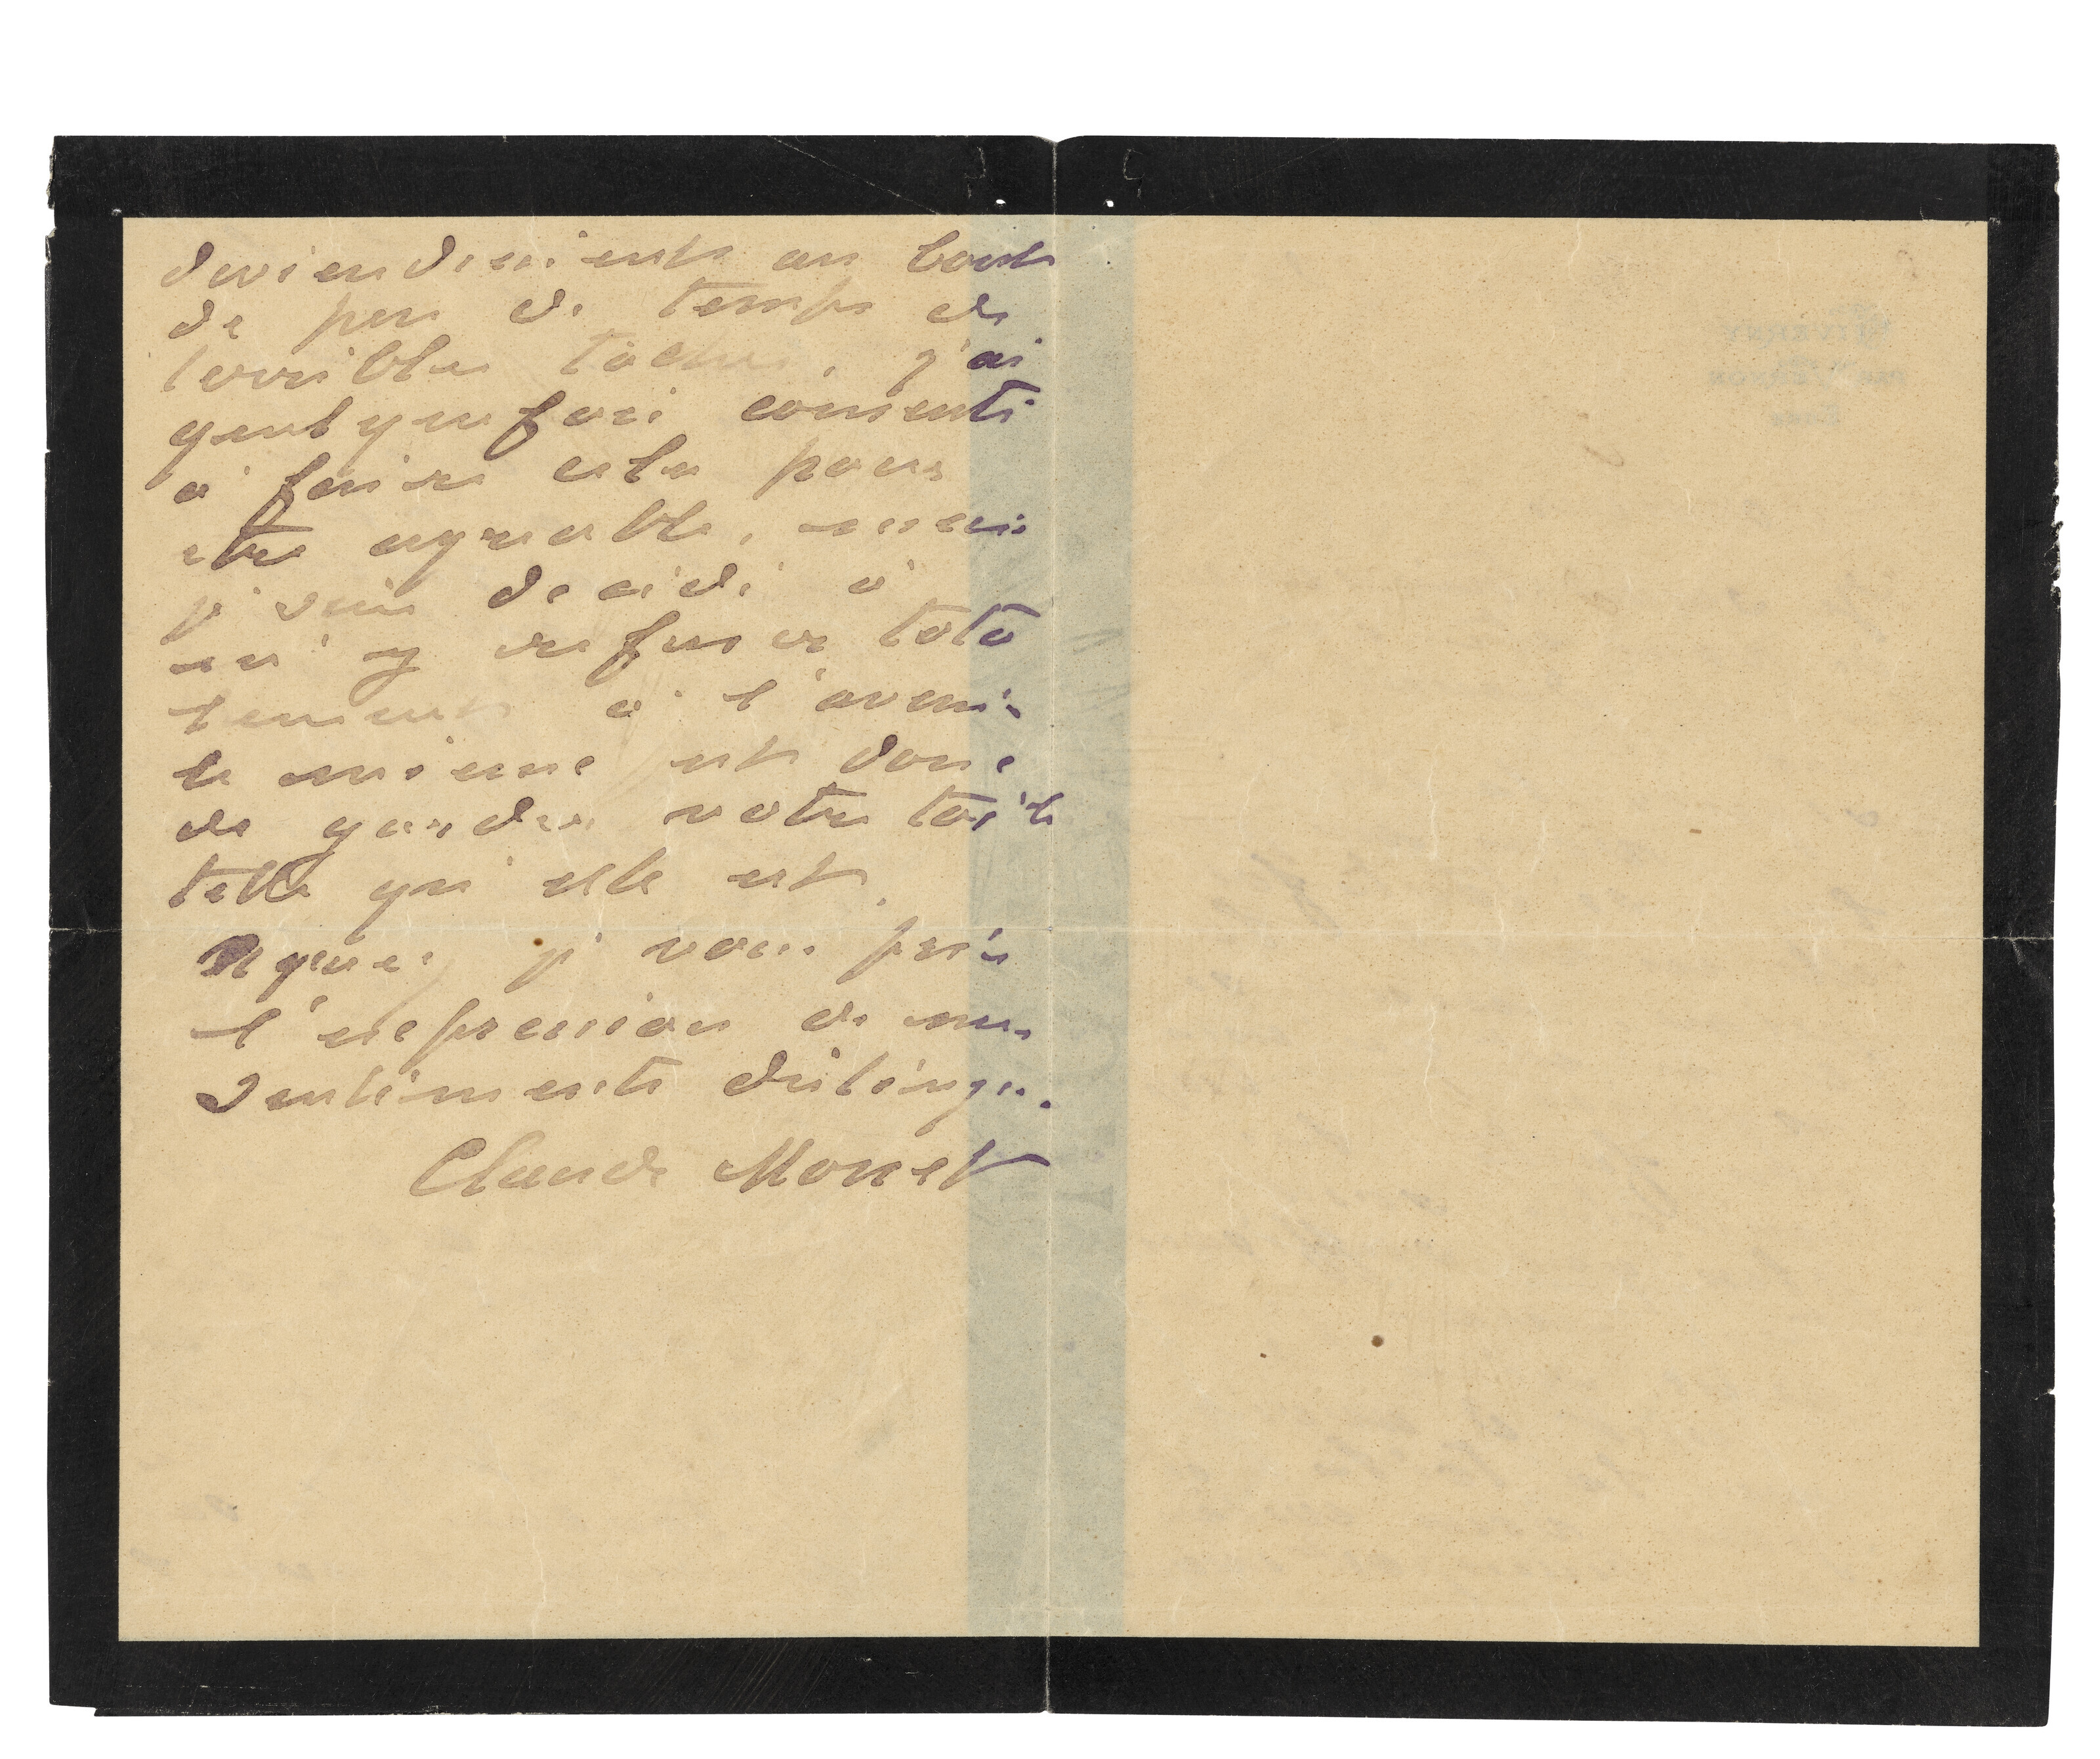 deviendraient au bout
de peu de temps de
terribles taches, j'ai
quelquefois consenti
à faire cela pour
être agréable, mais
je suis décidé à
m'y refuser tota
lement à l'avenir
le mieux est donc
de garder votre toile
telle qu'elle est.
Agréez, je vous prie
l'expression de mes
sentiments distingués.
Claude Monet